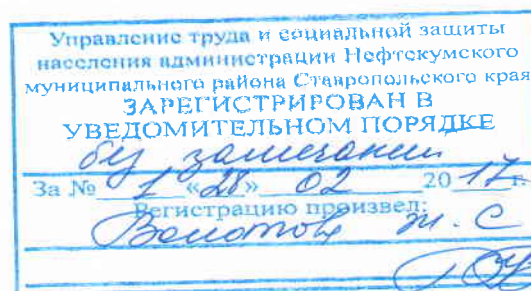 Управление труда и социальной защиты
населения администрации Нефтекумского
муниципального района Ставропольского края
ЗАРЕГИСТРИРОВАН В
УВЕДОМИТЕЛЬНОМ ПОРЯДКЕ
без замечаний
За № 1 «28» 02 2017 г.
Регистрацию произвел: